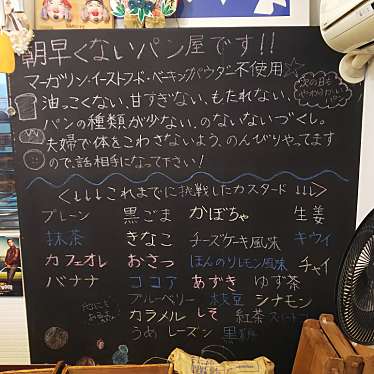 朝早くないパン屋です!!
マーガリン・イーストフード・ベーキングパウダー不使用☆
油っこくない、甘すぎない、もたれない、
パンの種類が少ない、のないないづくし。
夫婦で体をこわさないよう、のんびりやってます
ので、話相手になって下さい!
次の日も
やわらかい
パン
<↓↓↓これまでに挑戦したカスタード↓↓↓>
プレーン 黒ごま かぼちゃ 生姜
抹茶 きなこ チーズケーキ風味 キウイ
カフェオレ おさつ ほんのりレモン風味 チャイ
バナナ ココア あずき ゆず茶
ブルーベリー 枝豆 シナモン
キャラメル しそ 紅茶
うめ レーズン